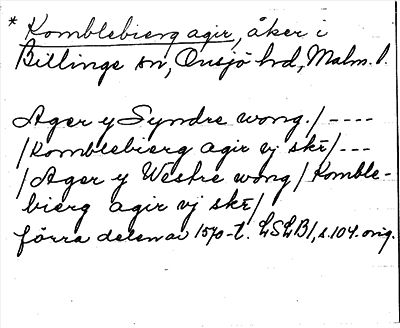 * Komblebierg agir, åker i
Billinge sn, Onsjö hd, Malm. l.
Ager y Syndre wong. / ----
/ Komblebierg agir vj skr / ---
/ Ager y Westre wong / Komble-
bierg agir vj skr /
förra delen av 1570-t. LSLB1, s. 104. orig.